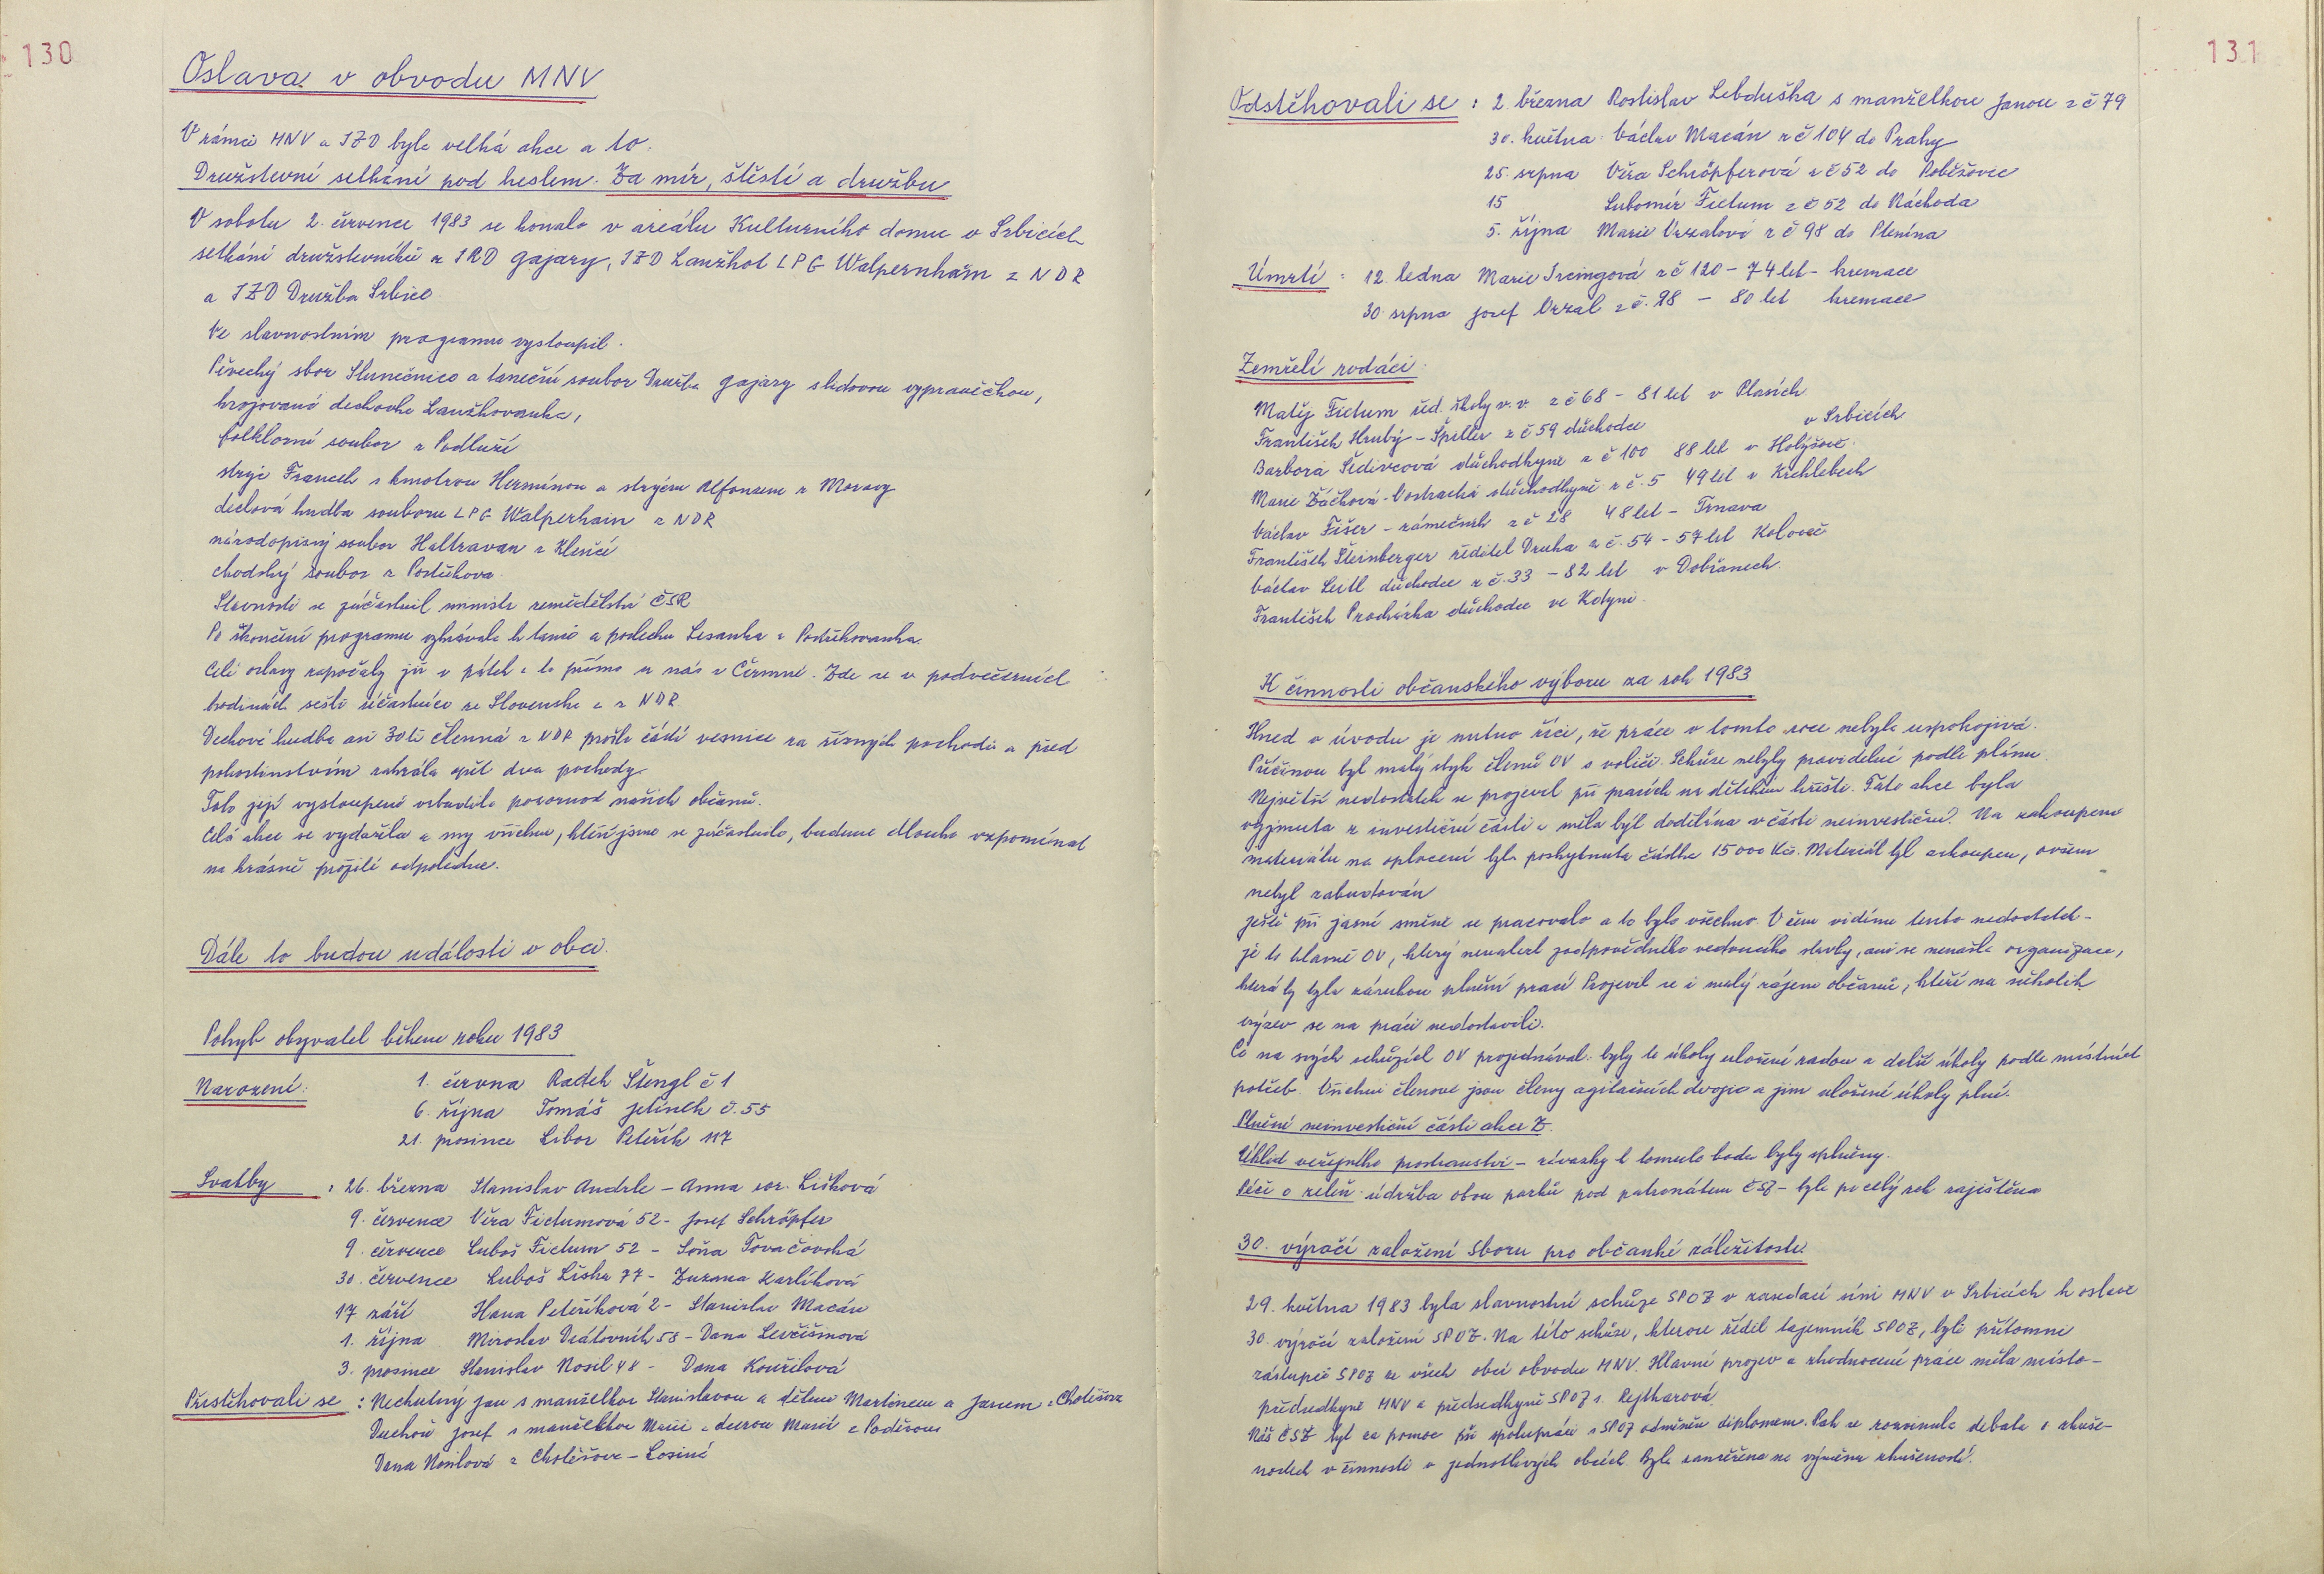 130
Oslava v obvodu MNV
V rámci MNV a JZD byla velká akce a to:
Družstevní setkání pod heslem. Za mír, štěstí a družbu
V sobotu 2. července 1983 se konalo v areálu Kulturního domu v Srbicích
setkání družstevníků z JRD Gajary, JZD Lanžhot LPG Walpernhain z NDR
a JZD Družba Srbice
Ve slavnostním programu vystoupil.
Pěvecký sbor Slunečnice a taneční soubor Družba Gajary s lidovou vypravěčkou,
krojovaná dechovka Lanžhovanka,
folklorní soubor z Podluží
strýc Francek s kmotrou Hermínou a strýcem Alfonsem z Moravy
dechová hudba souboru LPG Walperhain z NDR
národopisný soubor Haltravan z Klenčí
chodský soubor z Postřekova.
Slavnosti se zúčastnil ministr zemědělství ČSR
Po skončení programu vyhrávala k tanci a poslechu Lesanka a Postřekovanka.
Celé oslavy započaly již v pátek a to přímo u nás v Čermné. Zde se v podvečerních
hodinách sešli účastníci ze Slovenska a z NDR
Dechová hudba asi 30ti členná z NDR prošla částí vesnice za různých pochodů a před
pohostinstvím zahrála opět dva pochody
Toto její vystoupení vzbudilo pozornost našich občanů.
Celá akce se vydařila a my všichni, kteří jsme se zúčastnili, budeme dlouho vzpomínat
na krásně prožité odpoledne.
Dále to budou události v obci.
Pohyb obyvatel během roku 1983
Narození: 1. června Radek Štengl č 1
6. října Tomáš Jelínek č. 55
21. prosince Libor Peteřík 117
Svatby : 26. března Stanislav Andrle – Anna roz. Lišková
9. července Věra Fictumová 52 - Josef Schröpfer
9. července Luboš Fictum 52 – Soňa Tovačovská
30. července Luboš Liška 77 - Zuzana Karlíková
17 září Hana Peteříková 2 - Stanislav Macán
1. října Miroslav Drátovník 53 – Dana Levčišinová
3. prosince Stanislav Nosil 48 - Dana Kouřilová
Přistěhovali se : Nechutný Jan s manželkou Stanislavou a dětmi Martinem a Janem z Chotěšova
Duchoň Josef s manželkou Marií a dcerou Marií z Poděvous
Dana Nosilová z Chotěšova – Losina
131
Odstěhovali se : 2. března Rostislav Lebduška s manželkou Janou z č 79
30. května Václav Macán z č 104 do Prahy
25. srpna Věra Schröpferová z č 52 do Poběžovic
15 Lubomír Fictum z č 52 do Náchoda
5. října Marie Vrzalová z č 98 do Plenína
Úmrtí : 12. ledna Marie Ircingová z č 120 – 74 let – kremace
30. srpna Josef Vrzal z č. 98 – 80 let kremace
Zemřelí rodáci:
Matěj Fictum řed. školy v. v. z č 68 – 81 let v Plasích
František Hrubý – Špiller z č 59 důchodce v Srbicích
Barbora Šedivcová důchodkyně z č 100 88 let v Holýšově.
Marie Žáčková - Vostracká důchodkyně z č. 5 49 let v Křchlebech
Václav Fišer – zámečník z č 28 48 let – Trnava
František Šteinberger ředitel Druha z č. 54 – 57 let Koloveč
Václav Leitl důchodce z č. 33 – 82 let v Dobřanech
František Procházka důchodce ve Kdyni.
K činnosti občanského výboru za rok 1983
Hned v úvodu je nutno říci, že práce v tomto roce nebyla uspokojivá.
Příčinou byl malý styk členů OV s voliči. Schůze nebyly pravidelné podle plánu.
Největší nedostatek se projevil při pracích na dětském hřišti. Tato akce byla
vyjmuta z investiční části a měla být dodělána v části neinvestiční. Na zakoupení
materiálu na oplocení byla poskytnuta částka 15 000 Kčs. Materiál byl zakoupen, ovšem
nebyl zabudován
Ještě při jarní směně se pracovalo a to bylo všechno. V čem vidíme tento nedostatek –
je to hlavně OV, který nenalezl zodpovědného vedoucího stavby, ani se nenašla organizace,
která by byla zárukou plnění prací Projevil se i malý zájem občanů, kteří na několik
výzev se na práci nedostavili.
Co na svých schůzích OV projednával: byly to úkoly uložené radou a další úkoly podle místních
potřeb. Všichni členové jsou členy agitačních dvojic a jim uložené úkoly plní.
Plnění neinvestiční části akce Z.
Úklid veřejného prostranství – závazky k tomuto bodu byly splněny.
Péče o zeleň - údržba obou parků pod patronátem ČSŽ – byla po celý rok zajištěna
30. výročí založení Sboru pro občanké záležitosti
29. května 1983 byla slavnostní schůze SPOZ v zasedací síni MNV v Srbicích k oslavě
30. výročí založení SPOZ. Na této schůzi, kterou řídil tajemník SPOZ, byli přítomni
zástupci SPOZ ze všech obcí obvodu MNV. Hlavní projev a zhodnocení práce měla místo-
předsedkyně MNV a předsedkyně SPOZ s. Rejtharová.
Náš ČSŽ byl za pomoc při spolupráci s SPOZ odměněn diplomem. Pak se rozvinula debata o zkuše-
nostech v činnosti v jednotlivých obcích Byla zaměřena na výměnu zkušeností.